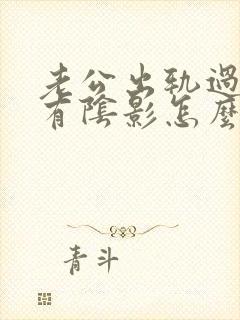 老公出軌過
有陰影怎麼
青斗